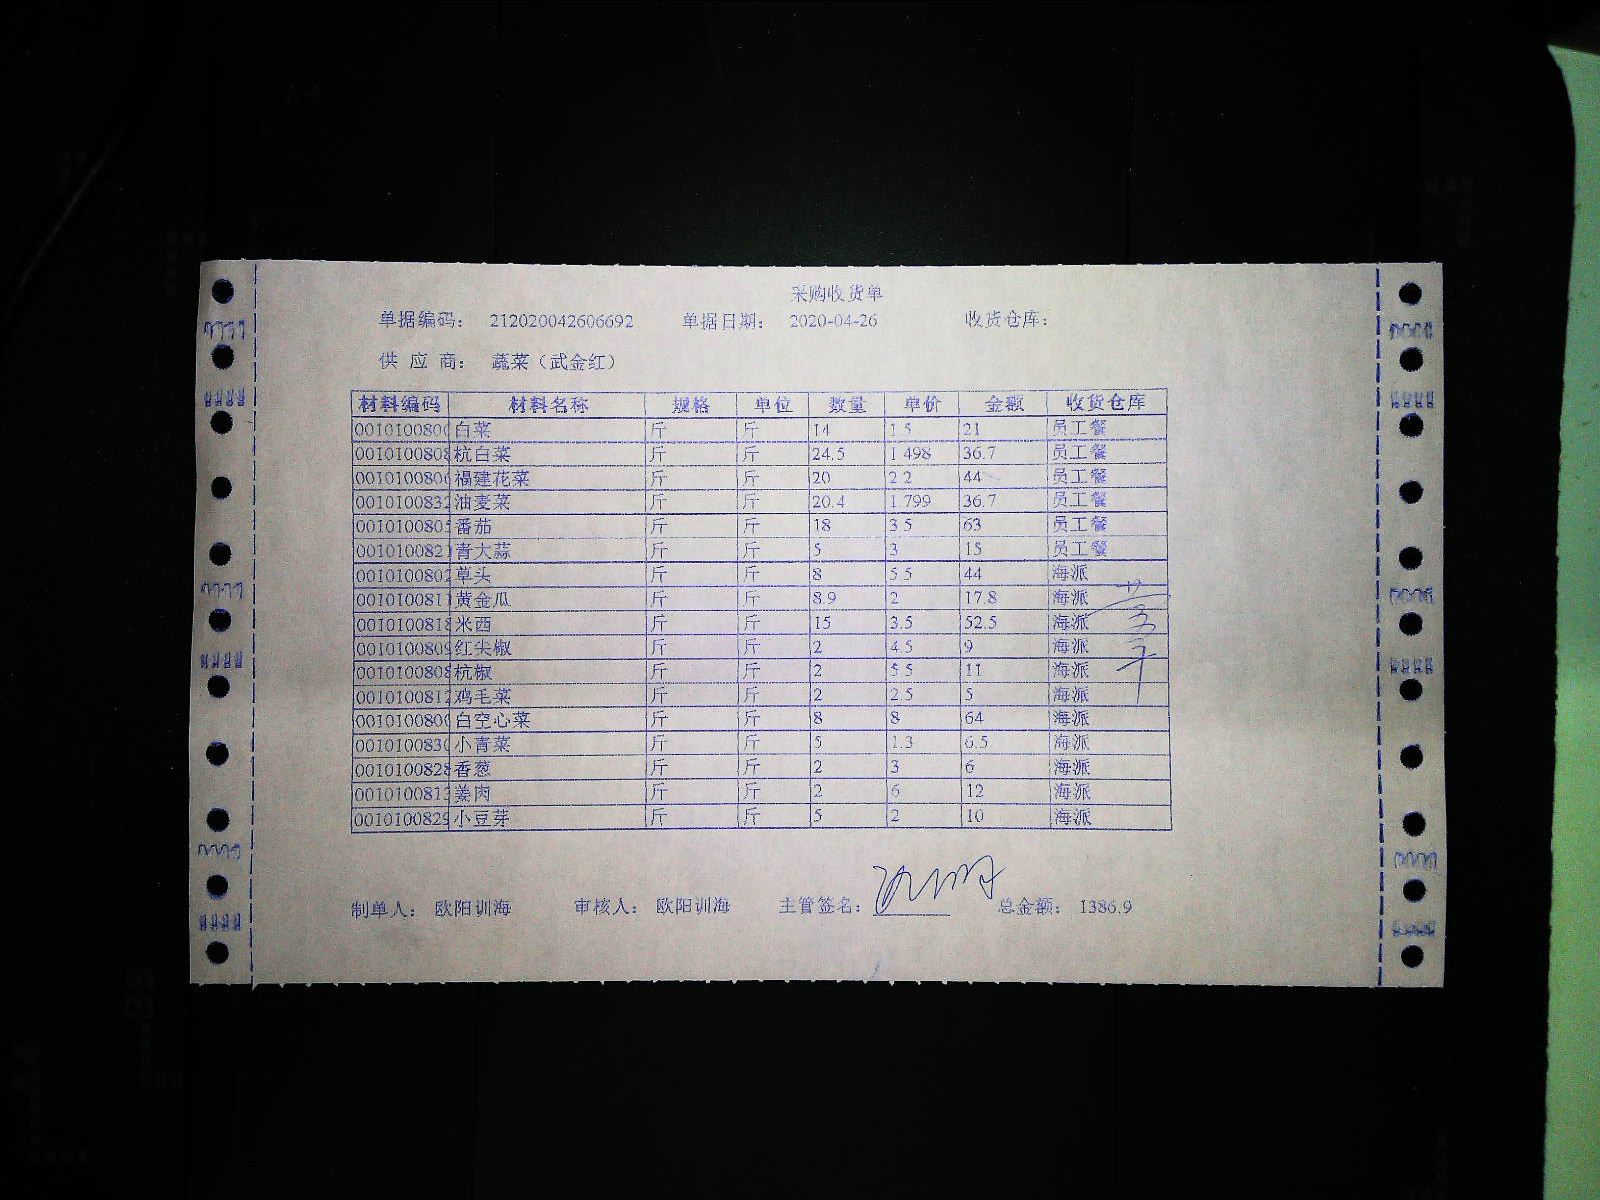 采购收货单
单据编码： 212020042606692 单据日期： 2020-04-26 收货仓库：
供 应 商： 蔬菜（武金红）
材料编码 材料名称 规格 单位 数量 单价 金额 收货仓库
0010100800 白菜 斤 斤 14 1.5 21 员工餐
0010100808 杭白菜 斤 斤 24.5 1.498 36.7 员工餐
0010100806 福建花菜 斤 斤 20 2.2 44 员工餐
0010100832 油麦菜 斤 斤 20.4 1.799 36.7 员工餐
0010100805 番茄 斤 斤 18 3.5 63 员工餐
0010100821 青大蒜 斤 斤 5 3 15 员工餐
0010100802 草头 斤 斤 8 5.5 44 海派
0010100811 黄金瓜 斤 斤 8.9 2 17.8 海派
0010100818 米西 斤 斤 15 3.5 52.5 海派
0010100809 红尖椒 斤 斤 2 4.5 9 海派
0010100808 杭椒 斤 斤 2 5.5 11 海派
0010100812 鸡毛菜 斤 斤 2 2.5 5 海派
0010100800 白空心菜 斤 斤 8 8 64 海派
0010100830 小青菜 斤 斤 5 1.3 6.5 海派
0010100828 香葱 斤 斤 2 3 6 海派
0010100813 姜肉 斤 斤 2 6 12 海派
0010100829 小豆芽 斤 斤 5 2 10 海派
制单人： 欧阳训海 审核人： 欧阳训海 主管签名： 总金额： 1386.9